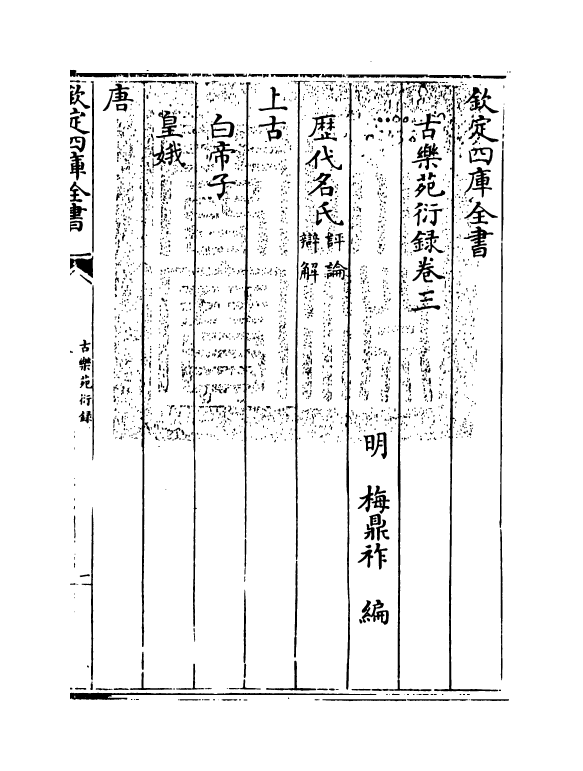 欽定四庫全書
古樂苑衍録卷三
明 梅鼎祚 編
歴代名氏 評論 辯解
上古
白帝子
皇娥
唐
欽定四庫全書
古樂苑衍録
一